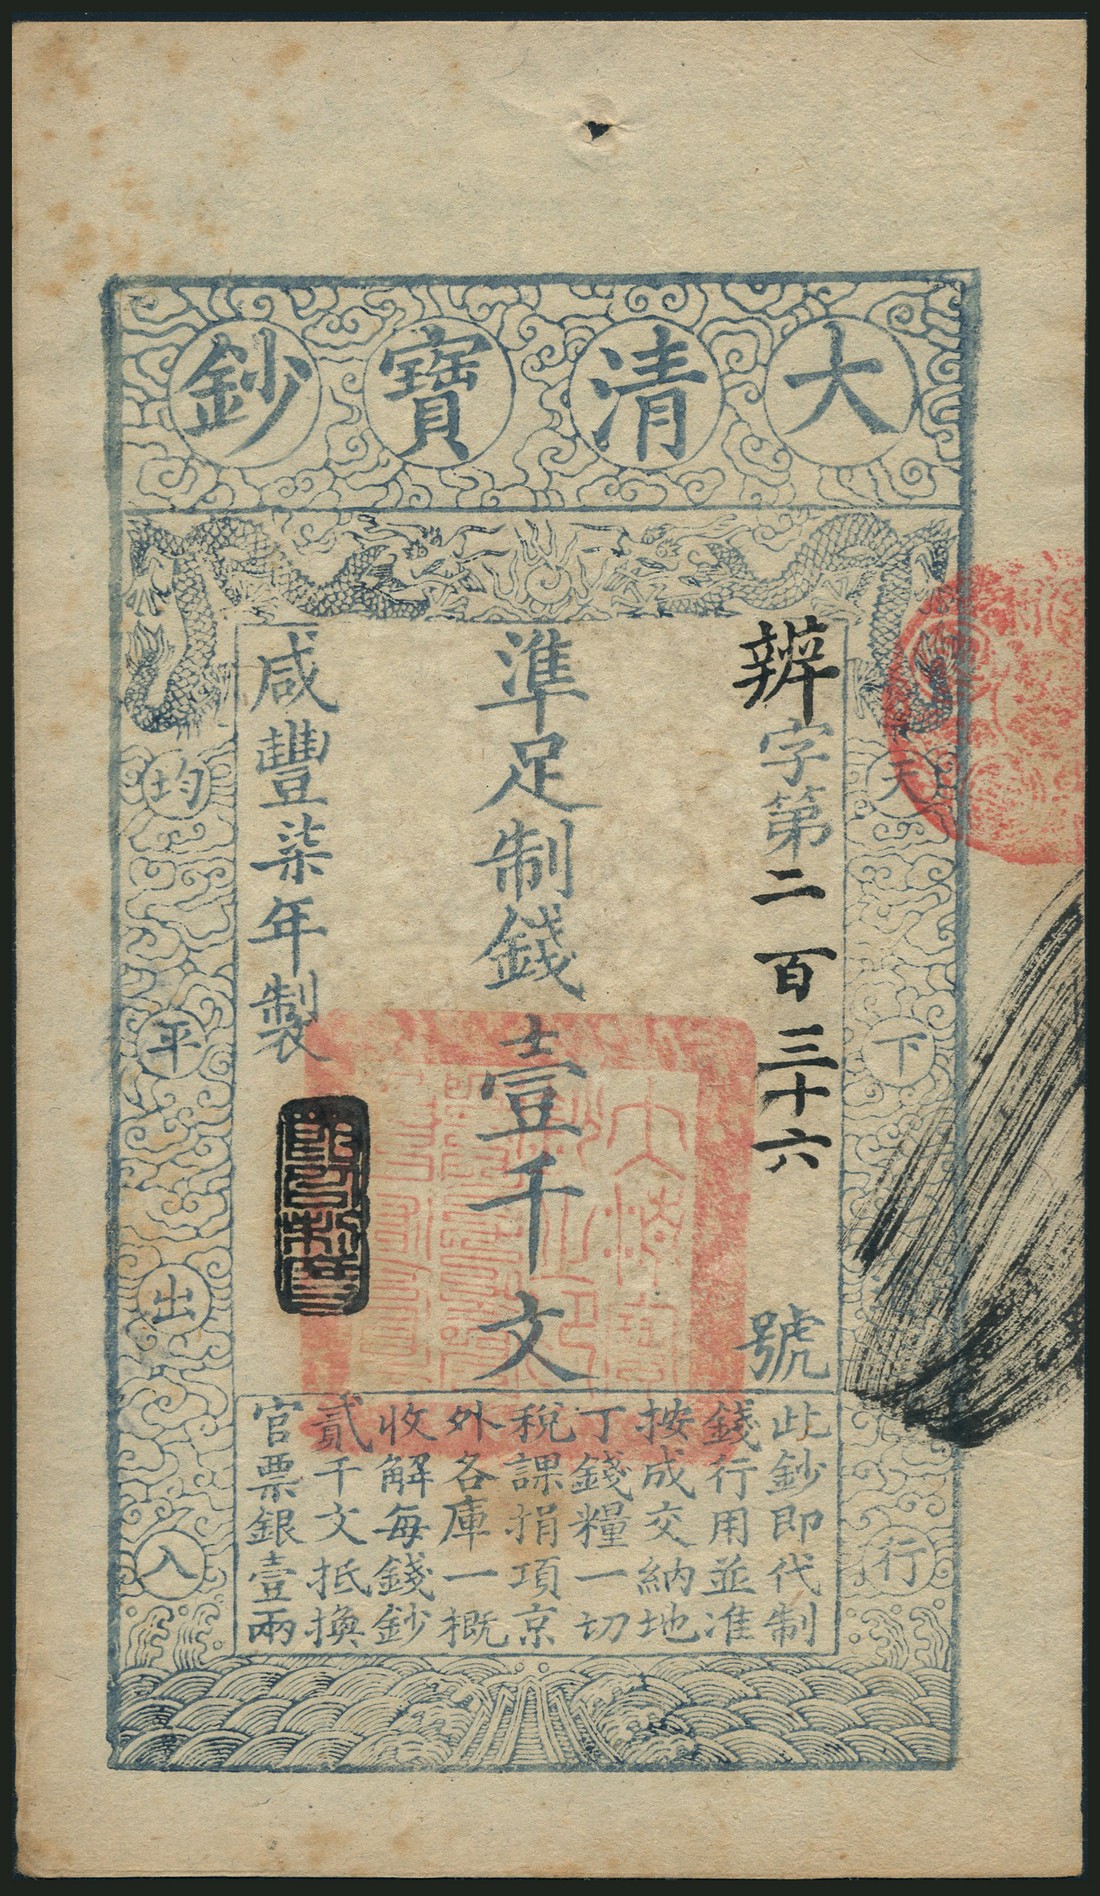 大清寶鈔
天下行
辨字第二百三十六號
準足制錢壹千文
咸豐柒年製
均平出入
此鈔即代制
錢行用並准
按成交納地
丁錢糧一切
稅課捐項京
外各庫一概
收解每錢鈔
貳千文抵換
官票銀壹兩